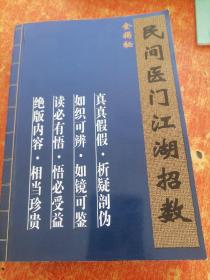 民间医门江湖招数
全揭秘
真真假假·析疑剖伪
如织可辨·如镜可鉴
读必有悟·悟必受益
绝版内容·相当珍贵